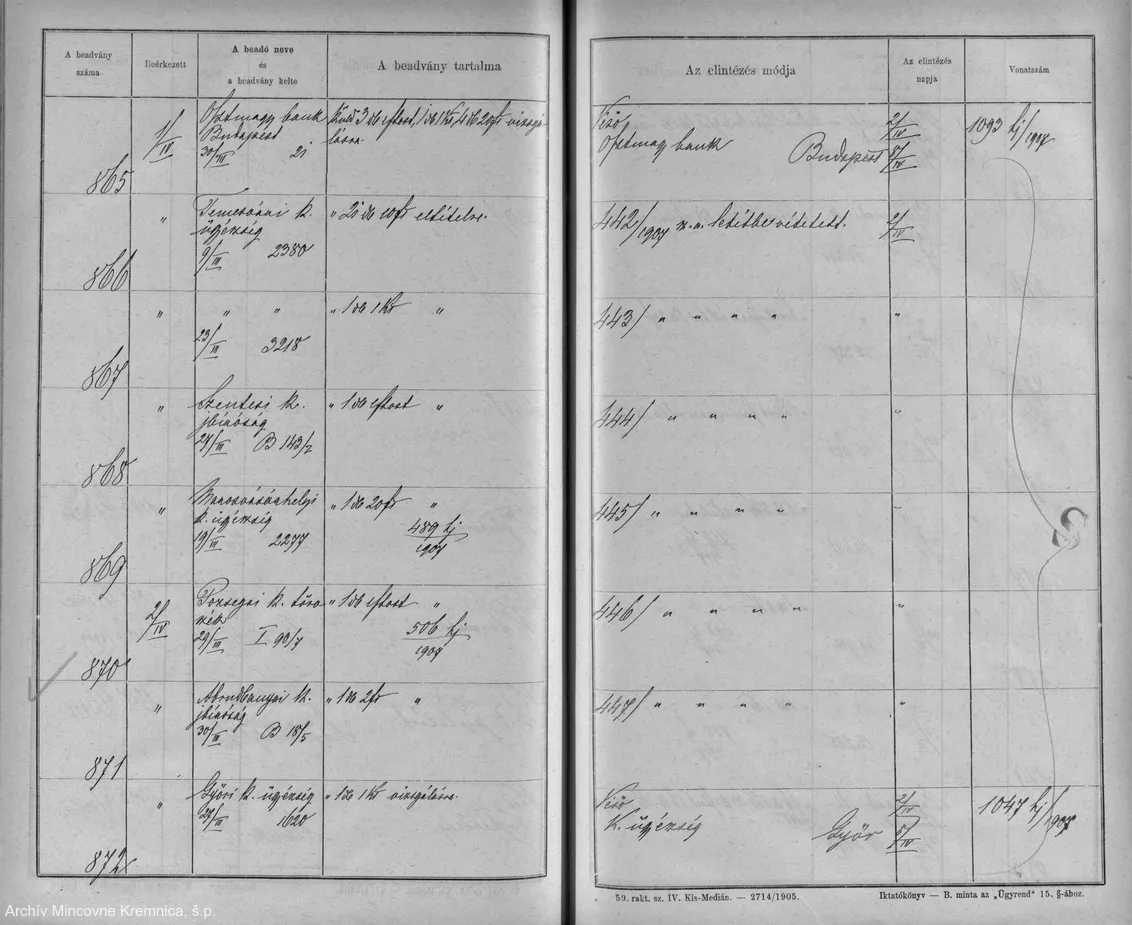 A beadvány
száma
Beérkezett
A beadó neve
és
a beadvány kelte
A beadvány tartalma
865
1/IV
Osztmagy bank
Budapest
30/III 2i
Küld 3 db 1 db 1 Kr, 4 db 20f vizsgá-
lásra.
866
"
Temesvári k.
ügyészség
9/III 2380
" 2 db 10f elitélve.
867
"
" "
23/III 3218
" 1 db 1 Kr "
868
"
Szentesi k.
jbíróság
27/III B 143/2
" 1 db "
869
"
Marosvásárhelyi
k. ügyészség
19/III 2277
" 1 db 20f "
489 bj
1907
870
2/IV
Pozsegai k. törv
szék
29/III I 90/7
" 1 db "
506 bj
1907
871
"
Abrudbányai k.
jbíróság
30/III B 18/5
" 1 db 2f "
872
"
Győri k. ügyészség
29/III 1620
" 1 db 1 Kr vizsgálásra.
Az elintézés módja
Az elintézés
napja
Vonatszám
Osztmagy bank
Budapest
2/IV
8/IV
1093 bj/1907
442/1907 letétbe vétetett.
2/IV
443/ " " " "
"
444/ " " " "
"
445/ " " " "
"
446/ " " " "
"
447/ " " " "
"
K. ügyészség
Győr
2/IV
5/IV
1047 bj/1907
59. rakt. sz. IV. Kis-Medián. — 2714/1905.
Iktatókönyv — B. minta az „Ügyrend" 15. §-ához.
Archív Mincovne Kremnica, š.p.